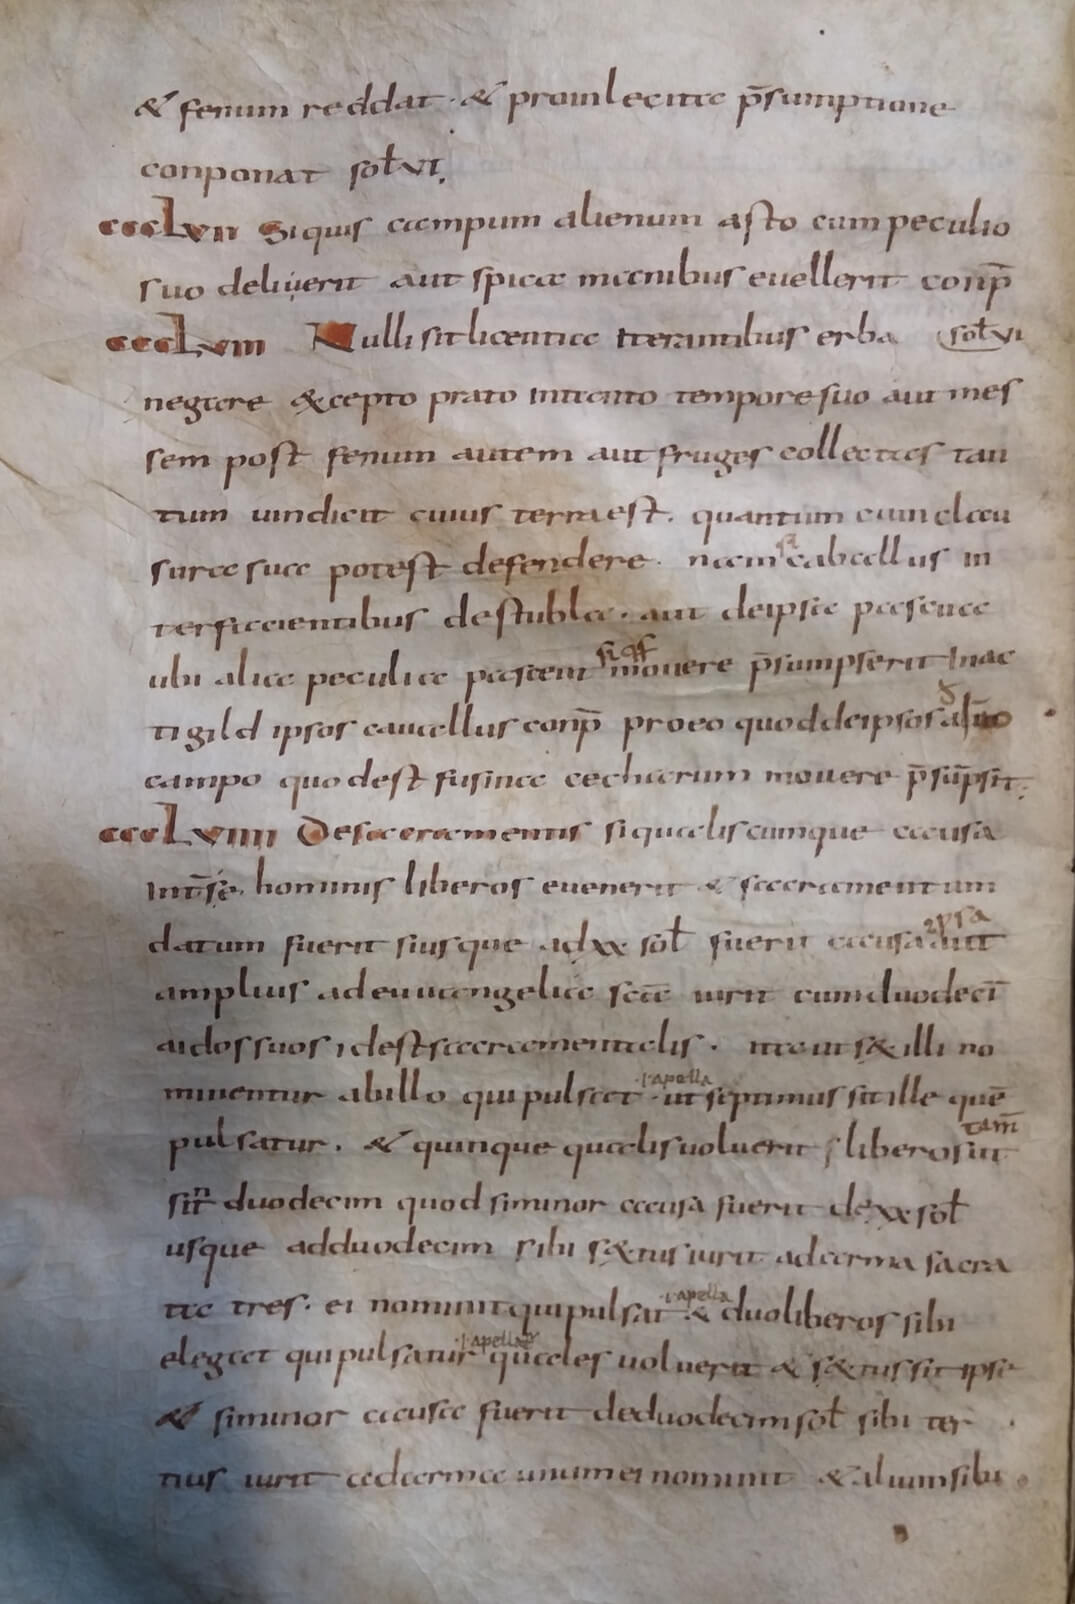 & fenum reddat · & proinlecita p̄sumptione
conponat soł VI.
CCCLVII Si quis campum alienum asto cum peculio
suo deliuerit aut spica manibus euellerit conp̄
CCCLVIII Nulli sit licentia iterantibus erba soł VI
negare excepto prato intacto tempore suo aut mes
sem post fenum autem aut fruges collectas tan
tum uindicit cuius terra est. quantum cum clau
sura sua potest defendere. nam si caballus in
ter facientibus de stubla. aut de ipsa pascua
ubi alia peculia pascent si q̄s mouere p̄sumpserit in ac
tigild ipsos cauallus conp̄ pro eo quod de ipsos
campo quod est fusinca echarum mouere p̄sūpsit.
CCCLVIIII De sacramentis si qualis cumque causa
int̄ hominis liberos euenerit & sacramentum
datum fuerit si usque ad XX soł fuerit causa ipsa aut
amplius ad euuangelia sc̄a iurit cum duodecī
aidos suos id est sacramentalis. ita ut s& illi no
minentur ab illo qui pulsat ·i· apella · ut septimus sit ille quē
pulsatur. & quinque qualis uoluerit liberos ut tam̄
sint duodecim quod si minor causa fuerit de XX soł
usque ad duodecim sibi s&tus iurit ad arma sacra
ta tres. ei nominit qui pulsat ·i· apella & duo liberos sibi
elegat qui pulsatur ·i· apellať quales uoluerit & s&tus sit ipse
& si minor causa fuerit de duodecim soł sibi ter
tius iurit ad arma unum ei nominit & alium sibi